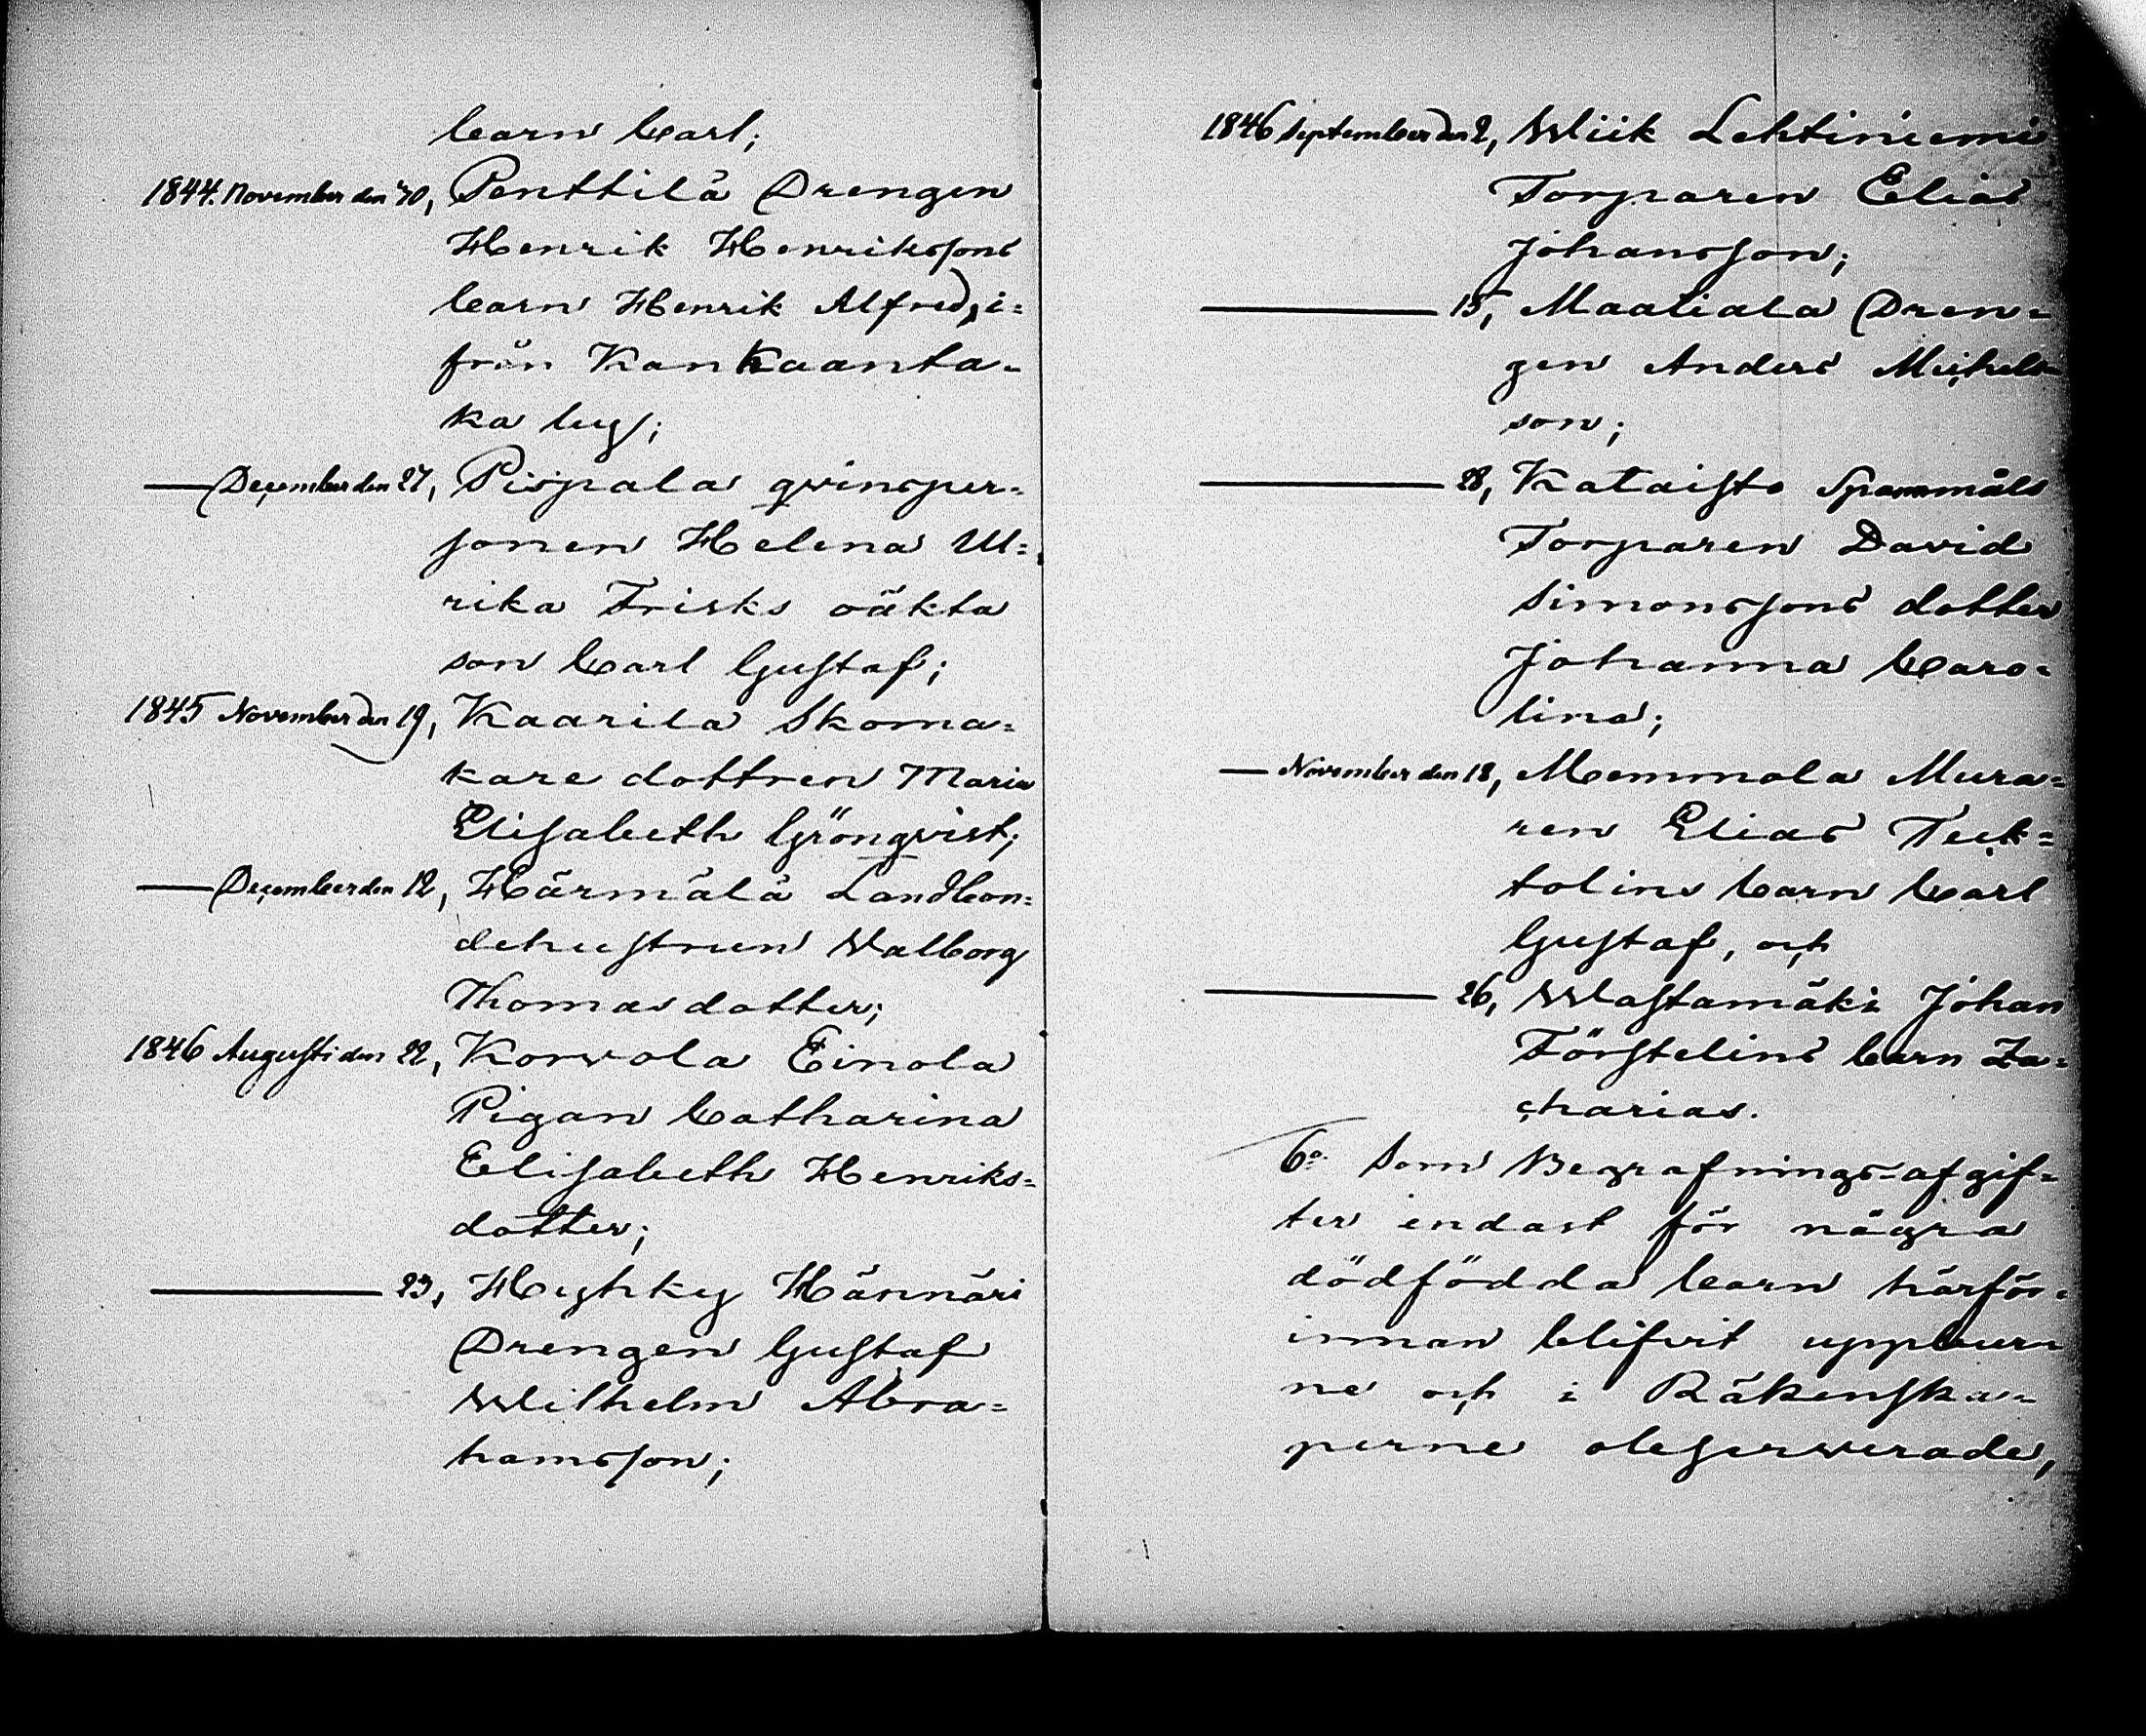 barn Carl;
1844. November den 30, Penttilä Drengen
Henrik Henrikssons
barn Henrik Alfred, i-
från Kankaanta-
ka by;
— December den 27, Pispala qvinsper-
sonen Helena Ul-
rika Frisks oäkta
son Carl Gustaf;
1845 November den 19, Kaarila Skoma-
kare dottren Maria
Elisabeth Grönqvist;
— December den 12, Härmälä Landbon-
dehustrun Walborg
Thomasdotter;
1846 Augusti den 22, Korvola Einola
Pigan Catharina
Elisabeth Henriks-
dotter;
— 23, Hyhky Hännäri
Drengen Gustaf
Wilhelm Abra-
hamsson;
1846 September den 2, Wiik Lehtiniemi
Torparen Elias
Johansson;
— 15, Maatiala Dren-
gen Anders Michels-
son;
— 28, Kataisto Spannmåls
Torparen David
Simonssons dotter
Johanna Caro-
lina;
— November den 18, Memmola Mura-
ren Elias Teck-
tolins barn Carl
Gustaf, och
— 26, Wastamäki Johan
Förstelins barn Za-
charias.
6o Som Begrafnings-afgif-
ter endast för några
dödfödda barn härför-
innan blifvit uppburn
ne och i Räkenska-
perne observerade,